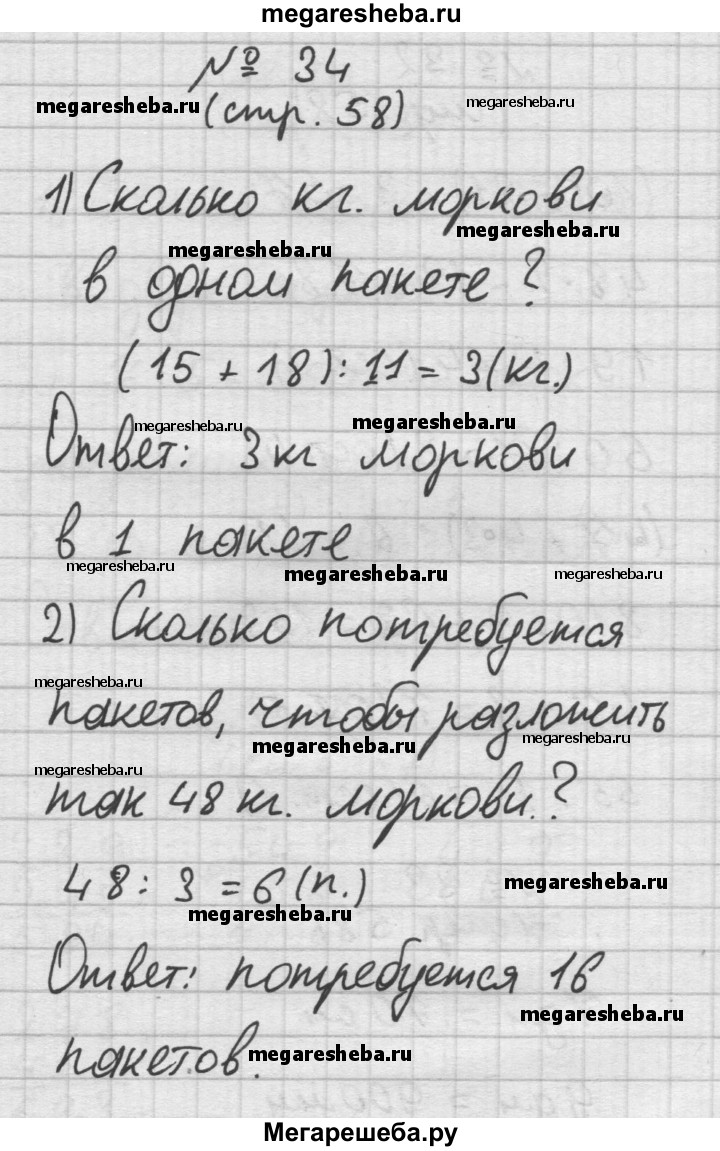 megaresheba.ru
№ 34
megaresheba.ru (стр. 58) megaresheba.ru
1) Сколько кг. моркови
megaresheba.ru megaresheba.ru
в одном пакете?
(15 + 18) : 11 = 3(кг.)
megaresheba.ru megaresheba.ru
Ответ: 3 кг моркови
в 1 пакете
megaresheba.ru megaresheba.ru megaresheba.ru
2) Сколько потребуется
megaresheba.ru
пакетов, чтобы разложить
megaresheba.ru megaresheba.ru
megaresheba.ru
так 48 кг. моркови.?
48 : 3 = 6 (п.) megaresheba.ru
megaresheba.ru
Ответ: потребуется 16
megaresheba.ru
пакетов. megaresheba.ru
Мегарешеба.ру